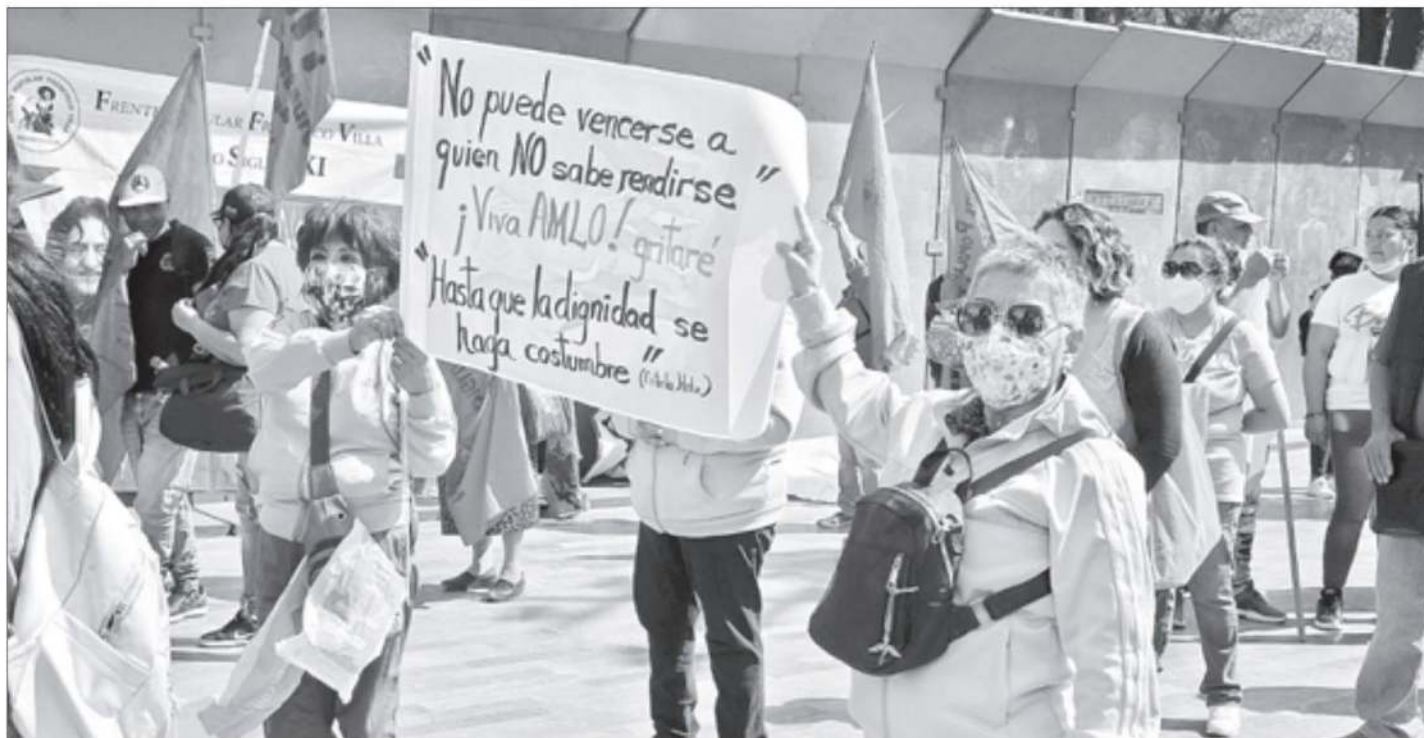 FRENTE
VILLA
"No puede vencerse a
quien NO sabe rendirse"
¡Viva AMLO! gritaré
"Hasta que la dignidad se
haga costumbre"